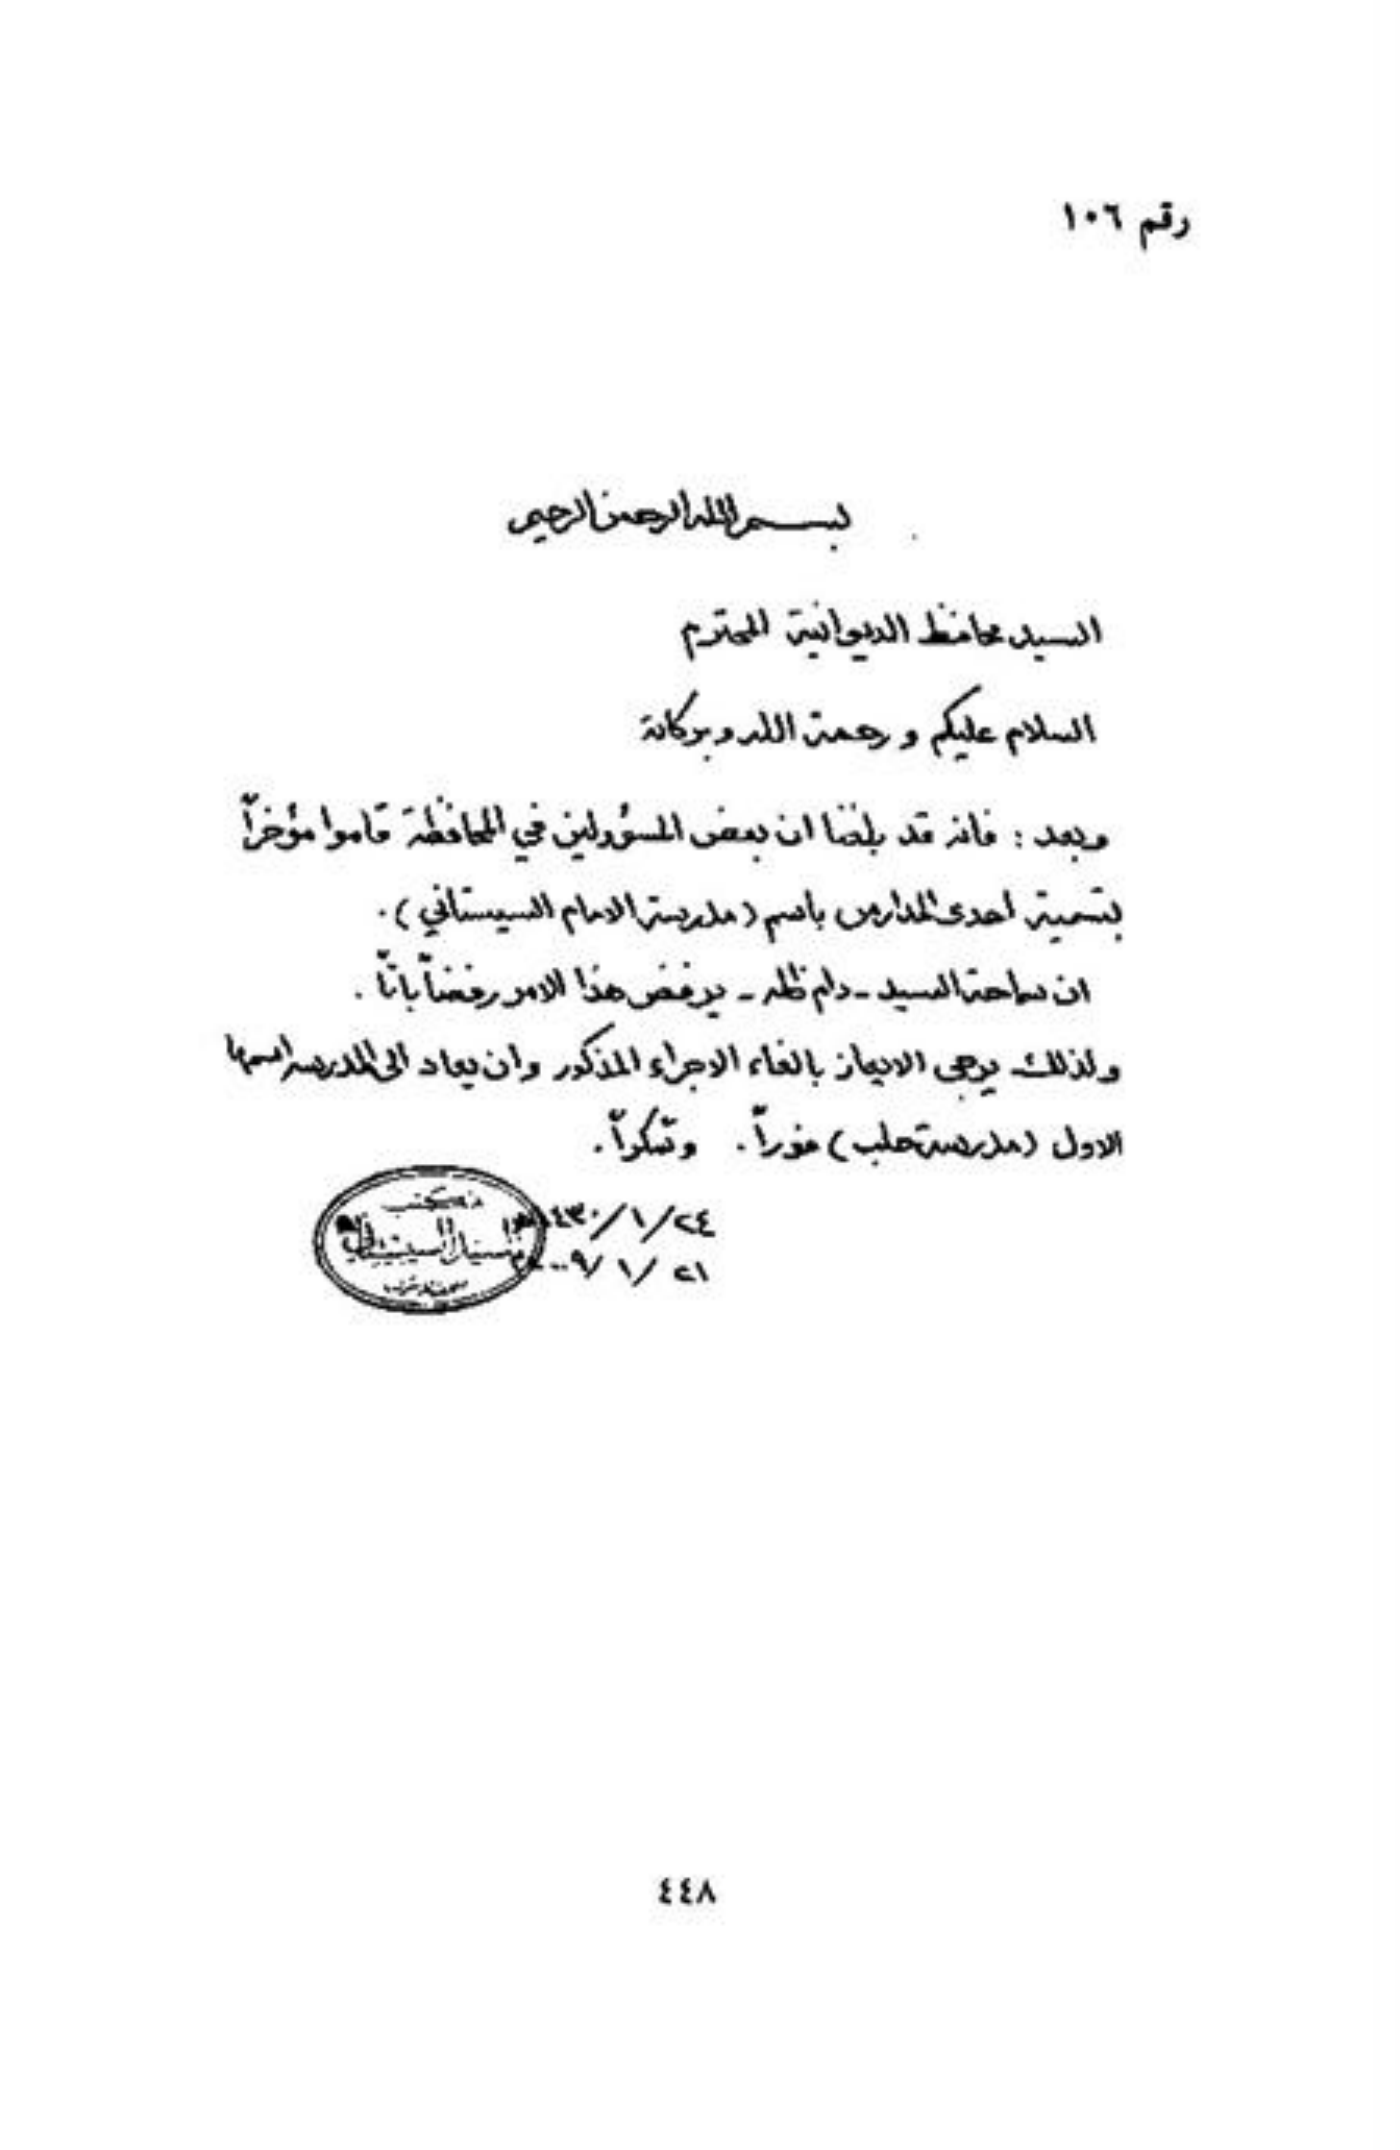 رقم ١٠٦
بسم الله الرحمن الرحيم
السيد محافظ الديوانية المحترم
السلام عليكم ورحمة الله وبركاته
وبعد : فانه قد بلغنا ان بعض المسؤولين في المحافظة قاموا مؤخراً
بتسمية احدى المدارس باسم (مدرسة الامام السيستاني) .
ان سماحة السيد - دام ظله - يرفض هذا الامر رفضاً باتاً .
ولذلك يرجى الايعاز بالغاء الاجراء المذكور وان يعاد الى المدرسة اسمها
الاول (مدرسة حلب) فوراً . وشكراً .
٢٤/١/١٤٣٠هـ
٢١/١/٢٠٠٩م
مكتب
السيد السيستاني
النجف الاشرف
٤٤٨